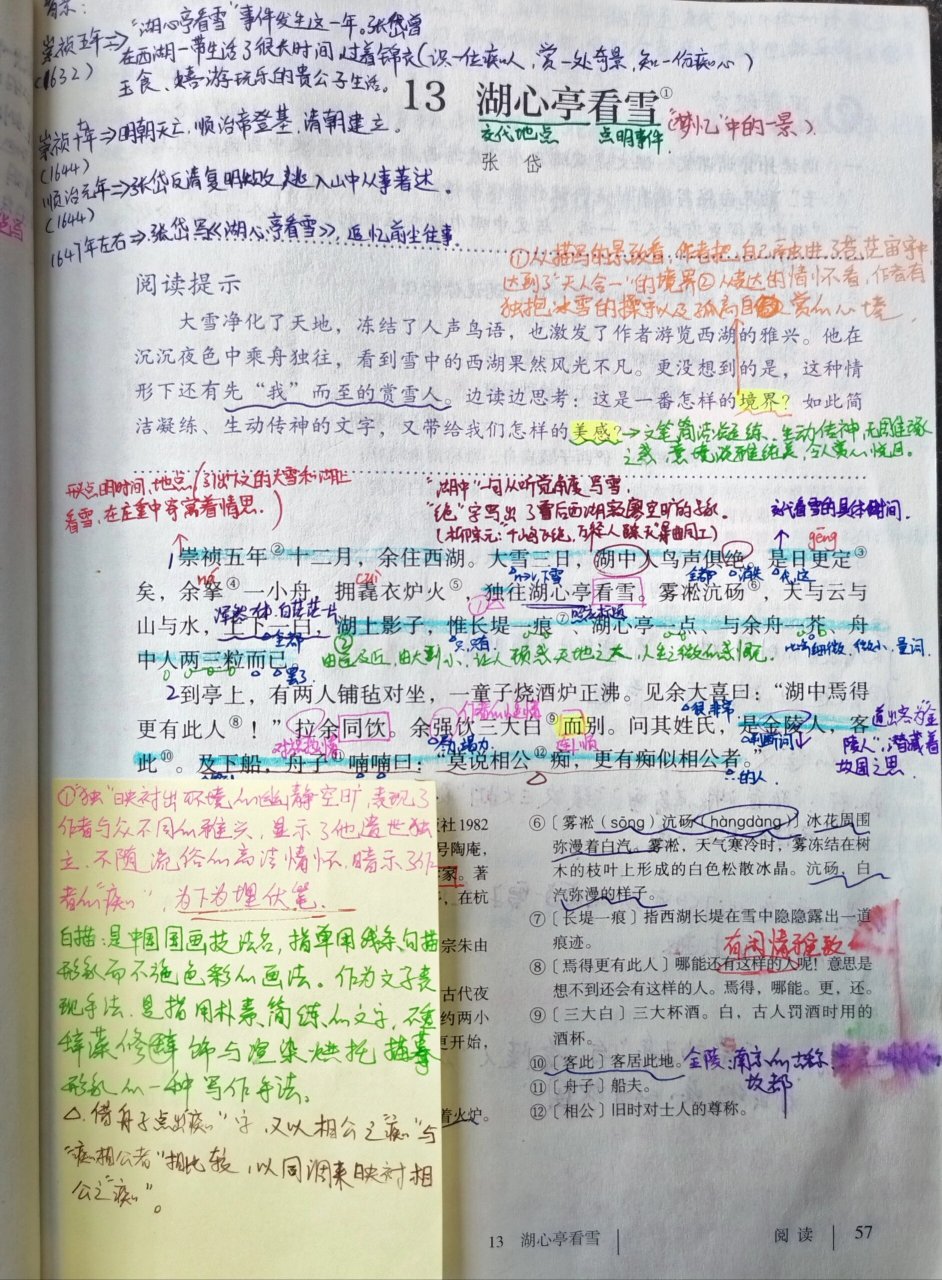 背景:
崇祯五年⇒"湖心亭看雪"事件发生这一年。张岱曾
(1632)
在西湖一带生活了很长时间,过着锦衣(识一位痴人,赏一处奇景,知一份痴心)
玉食、嬉游玩乐的贵公子生活。
13 湖心亭看雪①
交代地点 点明事件 "梦忆"中的一景)
张 岱
⇒明朝灭亡,顺治帝登基,清朝建立。
(1644)
顺治元年⇒张岱反清复明失败,逃入山中从事著述。
(1644)
1647年左右⇒张岱写《湖心亭看雪》,追忆前尘往事。
①从描写的景致看,作者把自己融进了苍茫宇宙中
达到了"天人合一"的境界②从表达的情怀看,作者有
独抱冰雪的操守以及孤高自赏的心境
阅读提示
大雪净化了天地,冻结了人声鸟语,也激发了作者游览西湖的雅兴。他在
沉沉夜色中乘舟独往,看到雪中的西湖果然风光不凡。更没想到的是,这种情
形下还有先"我"而至的赏雪人。边读边思考:这是一番怎样的境界?如此简
洁凝练、生动传神的文字,又带给我们怎样的美感?→文笔简洁凝练、生动传神,无因雕琢
之感,意境淡雅纯美,令人赏心悦目。
点明时间、地点,引出下文的大雪和湖上
看雪,在庄重中寄寓着情思。)
"湖中"一句从听觉角度写雪,
"绝"字写出了雪后西湖寂寥空旷的景象
交代看雪的具体时间。
gēng
1崇祯五年②十二月,余住西湖。大雪三日,湖中人鸟声俱绝。是日更定③
ná
cuì
下雪 全都 消失 代,这
矣,余拏④一小舟,拥毳衣炉火⑤,独往湖心亭看雪。雾凇沆砀⑥,天与云与
浑然一体,白茫茫一片
山与水,上下一白,湖上影子,惟长堤一痕⑦、湖心亭一点、与余舟一芥、舟
全都 只有
中人两三粒而已。
②由远及近,由大到小,让人顿感天地之大,人生之微的感慨。
罢了
2到亭上,有两人铺毡对坐,一童子炉正沸。见余大喜曰:"湖中焉得
更有此人⑧!"拉余同饮。余强饮三大白⑨而别。问其姓氏,是金陵人,客
对 尽力 判断词
道出客为"金
陵人",潜藏着
故国之思。
此⑩。及下船,舟子⑪喃喃曰:"莫说相公⑫痴,更有痴似相公者。"
的人
①"独"映衬出环境的幽静空旷,表现了
作者与众不同的雅兴,显示了他遗世独
立、不随流俗的高洁情怀,暗示了作
者的"痴",为下为埋伏笔。
白描:是中国国画技法名,指单用线条勾描
形象而不施色彩的画法。作为文字表
现手法,是指用朴素、简练的文字,不重
辞藻修辞饰与渲染烘托,描摹
形象的一种写作手法。
△借舟子点出"痴"字,又以相公之"痴"与
"痴似相公者"相比较,以同调来映衬相
公之"痴"。
版社1982
号陶庵,
家。著
,在杭
宗朱由
古代夜
约两小
更开始,
着火炉。
⑥〔雾凇(sōng)沆砀(hàngdàng)〕冰花周围
弥漫着白汽。雾凇,天气寒冷时,雾冻结在树
木的枝叶上形成的白色松散冰晶。沆砀,白
汽弥漫的样子。
⑦〔长堤一痕〕指西湖长堤在雪中隐隐露出一道
痕迹。
有闲情雅致
⑧〔焉得更有此人〕哪能还有这样的人呢!意思是
想不到还会有这样的人。焉得,哪能。更,还。
⑨〔三大白〕三大杯酒。白,古人罚酒时用的
酒杯。
⑩〔客此〕客居此地。金陵:南京的古称,
故都
⑪〔舟子〕船夫。
⑫〔相公〕旧时对士人的尊称。
13 湖心亭看雪 阅读 57